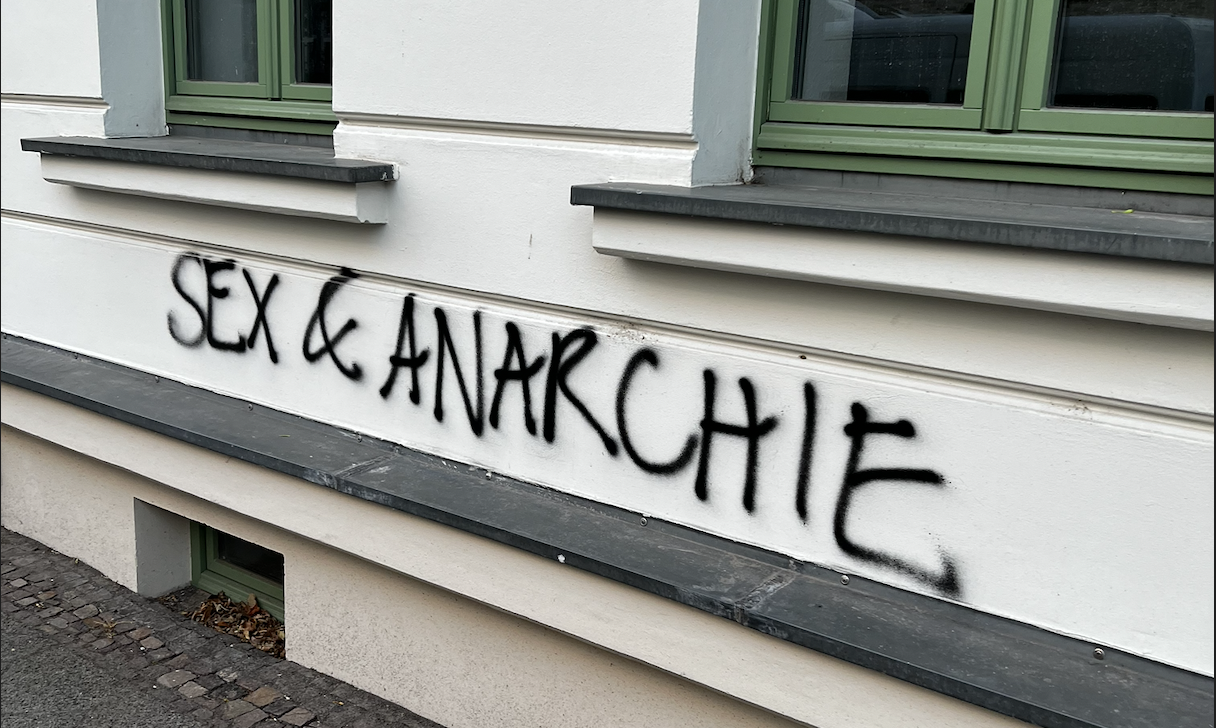 SEX & ANARCHIE